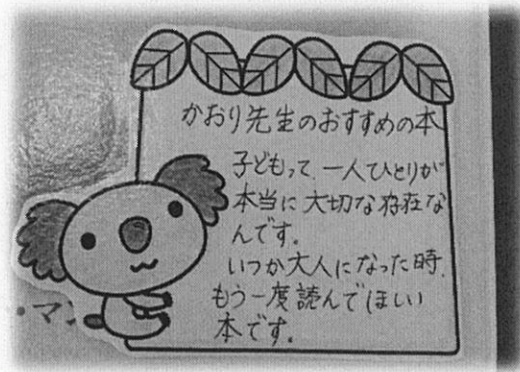 かおり先生のおすすめの本
子どもって、一人ひとりが
本当に大切な存在な
んです。
いつか大人になった時、
もう一度読んでほしい
本です。
・マン